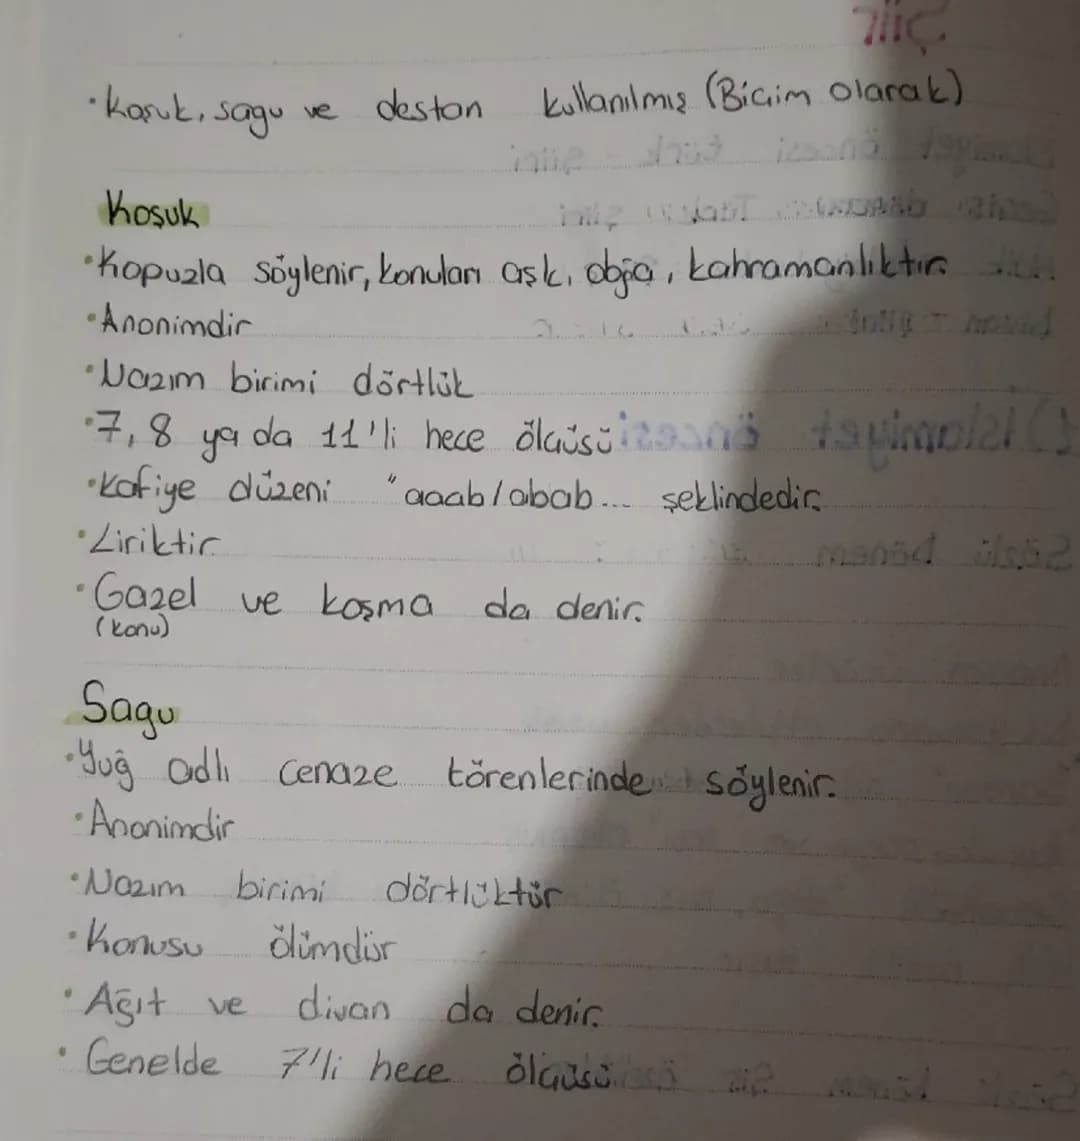 Şiir
• Koşuk, sagu ve destan kullanılmış (Biçim olarak)
Koşuk
• Kopuzla söylenir, konuları aşk, doğa, kahramanlıktır.
• Anonimdir
• Nazım birimi dörtlük
• 7, 8 ya da 11'li hece ölçüsü
• Kafiye düzeni "aaab/abab... şeklindedir.
• Liriktir.
• Gazel ve koşma da denir.
(konu)
Sagu
• Yuğ adlı cenaze törenlerinde söylenir.
• Anonimdir
• Nazım birimi dörtlüktür
• Konusu ölümdür
• Ağıt ve divan da denir.
• Genelde 7'li hece ölçüsü